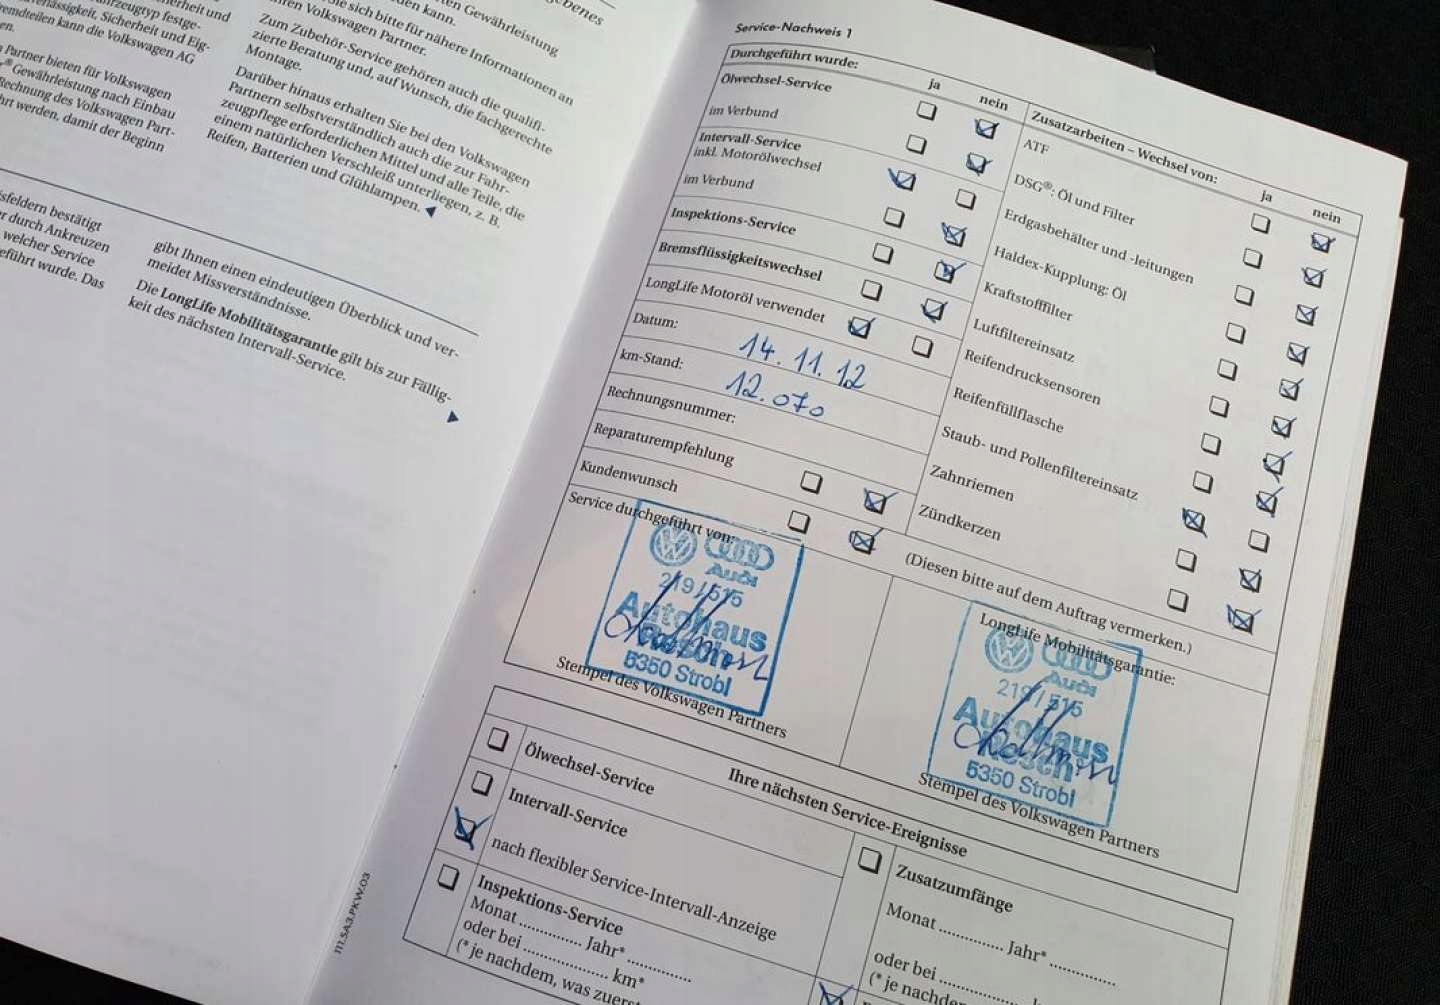 zeugtyp festge-
verlässigkeit, Sicherheit und Eig-
remdteilen kann die Volkswagen AG
Partner bieten für Volkswagen
® Gewährleistung nach Einbau
Rechnung des Volkswagen Part-
hrt werden, damit der Beginn
Gewährleistung
sich bitte für nähere Informationen an
Volkswagen Partner.
Zum Zubehör-Service gehören auch die qualifi-
zierte Beratung und, auf Wunsch, die fachgerechte
Montage.
Darüber hinaus erhalten Sie bei den Volkswagen
Partnern selbstverständlich auch die zur Fahr-
zeugpflege erforderlichen Mittel und alle Teile, die
einem natürlichen Verschleiß unterliegen, z. B.
Reifen, Batterien und Glühlampen.
isfeldern bestätigt
er durch Ankreuzen
welcher Service
eführt wurde. Das
gibt Ihnen einen eindeutigen Überblick und ver-
meidet Missverständnisse.
Die LongLife Mobilitätsgarantie gilt bis zur Fällig-
keit des nächsten Intervall-Service.
Service-Nachweis 1
Durchgeführt wurde: ja nein
Ölwechsel-Service
im Verbund
Intervall-Service
inkl. Motorölwechsel
im Verbund
Inspektions-Service
Bremsflüssigkeitswechsel
LongLife Motoröl verwendet
Datum: 14. 11. 12
km-Stand: 12.070
Rechnungsnummer:
Reparaturempfehlung
Kundenwunsch
Zusatzarbeiten – Wechsel von: ja nein
ATF
DSG®: Öl und Filter
Erdgasbehälter und -leitungen
Haldex-Kupplung: Öl
Kraftstofffilter
Luftfiltereinsatz
Reifendrucksensoren
Reifenfüllflasche
Staub- und Pollenfiltereinsatz
Zahnriemen
Zündkerzen
(Diesen bitte auf dem Auftrag vermerken.)
Service durchgeführt von:
Audi
219/515
Autohaus
Resch
5350 Strobl
Stempel des Volkswagen Partners
LongLife Mobilitätsgarantie:
Audi
219/515
Autohaus
Resch
5350 Strobl
Stempel des Volkswagen Partners
Ihre nächsten Service-Ereignisse
Ölwechsel-Service
Intervall-Service
nach flexibler Service-Intervall-Anzeige
Inspektions-Service
Monat .............. Jahr* ..............
oder bei .................. km*
(* je nachdem, was zuerst
Zusatzumfänge
Monat .............. Jahr* ..............
oder bei ..................
(* je nachdem
111.5A3.PKW.03